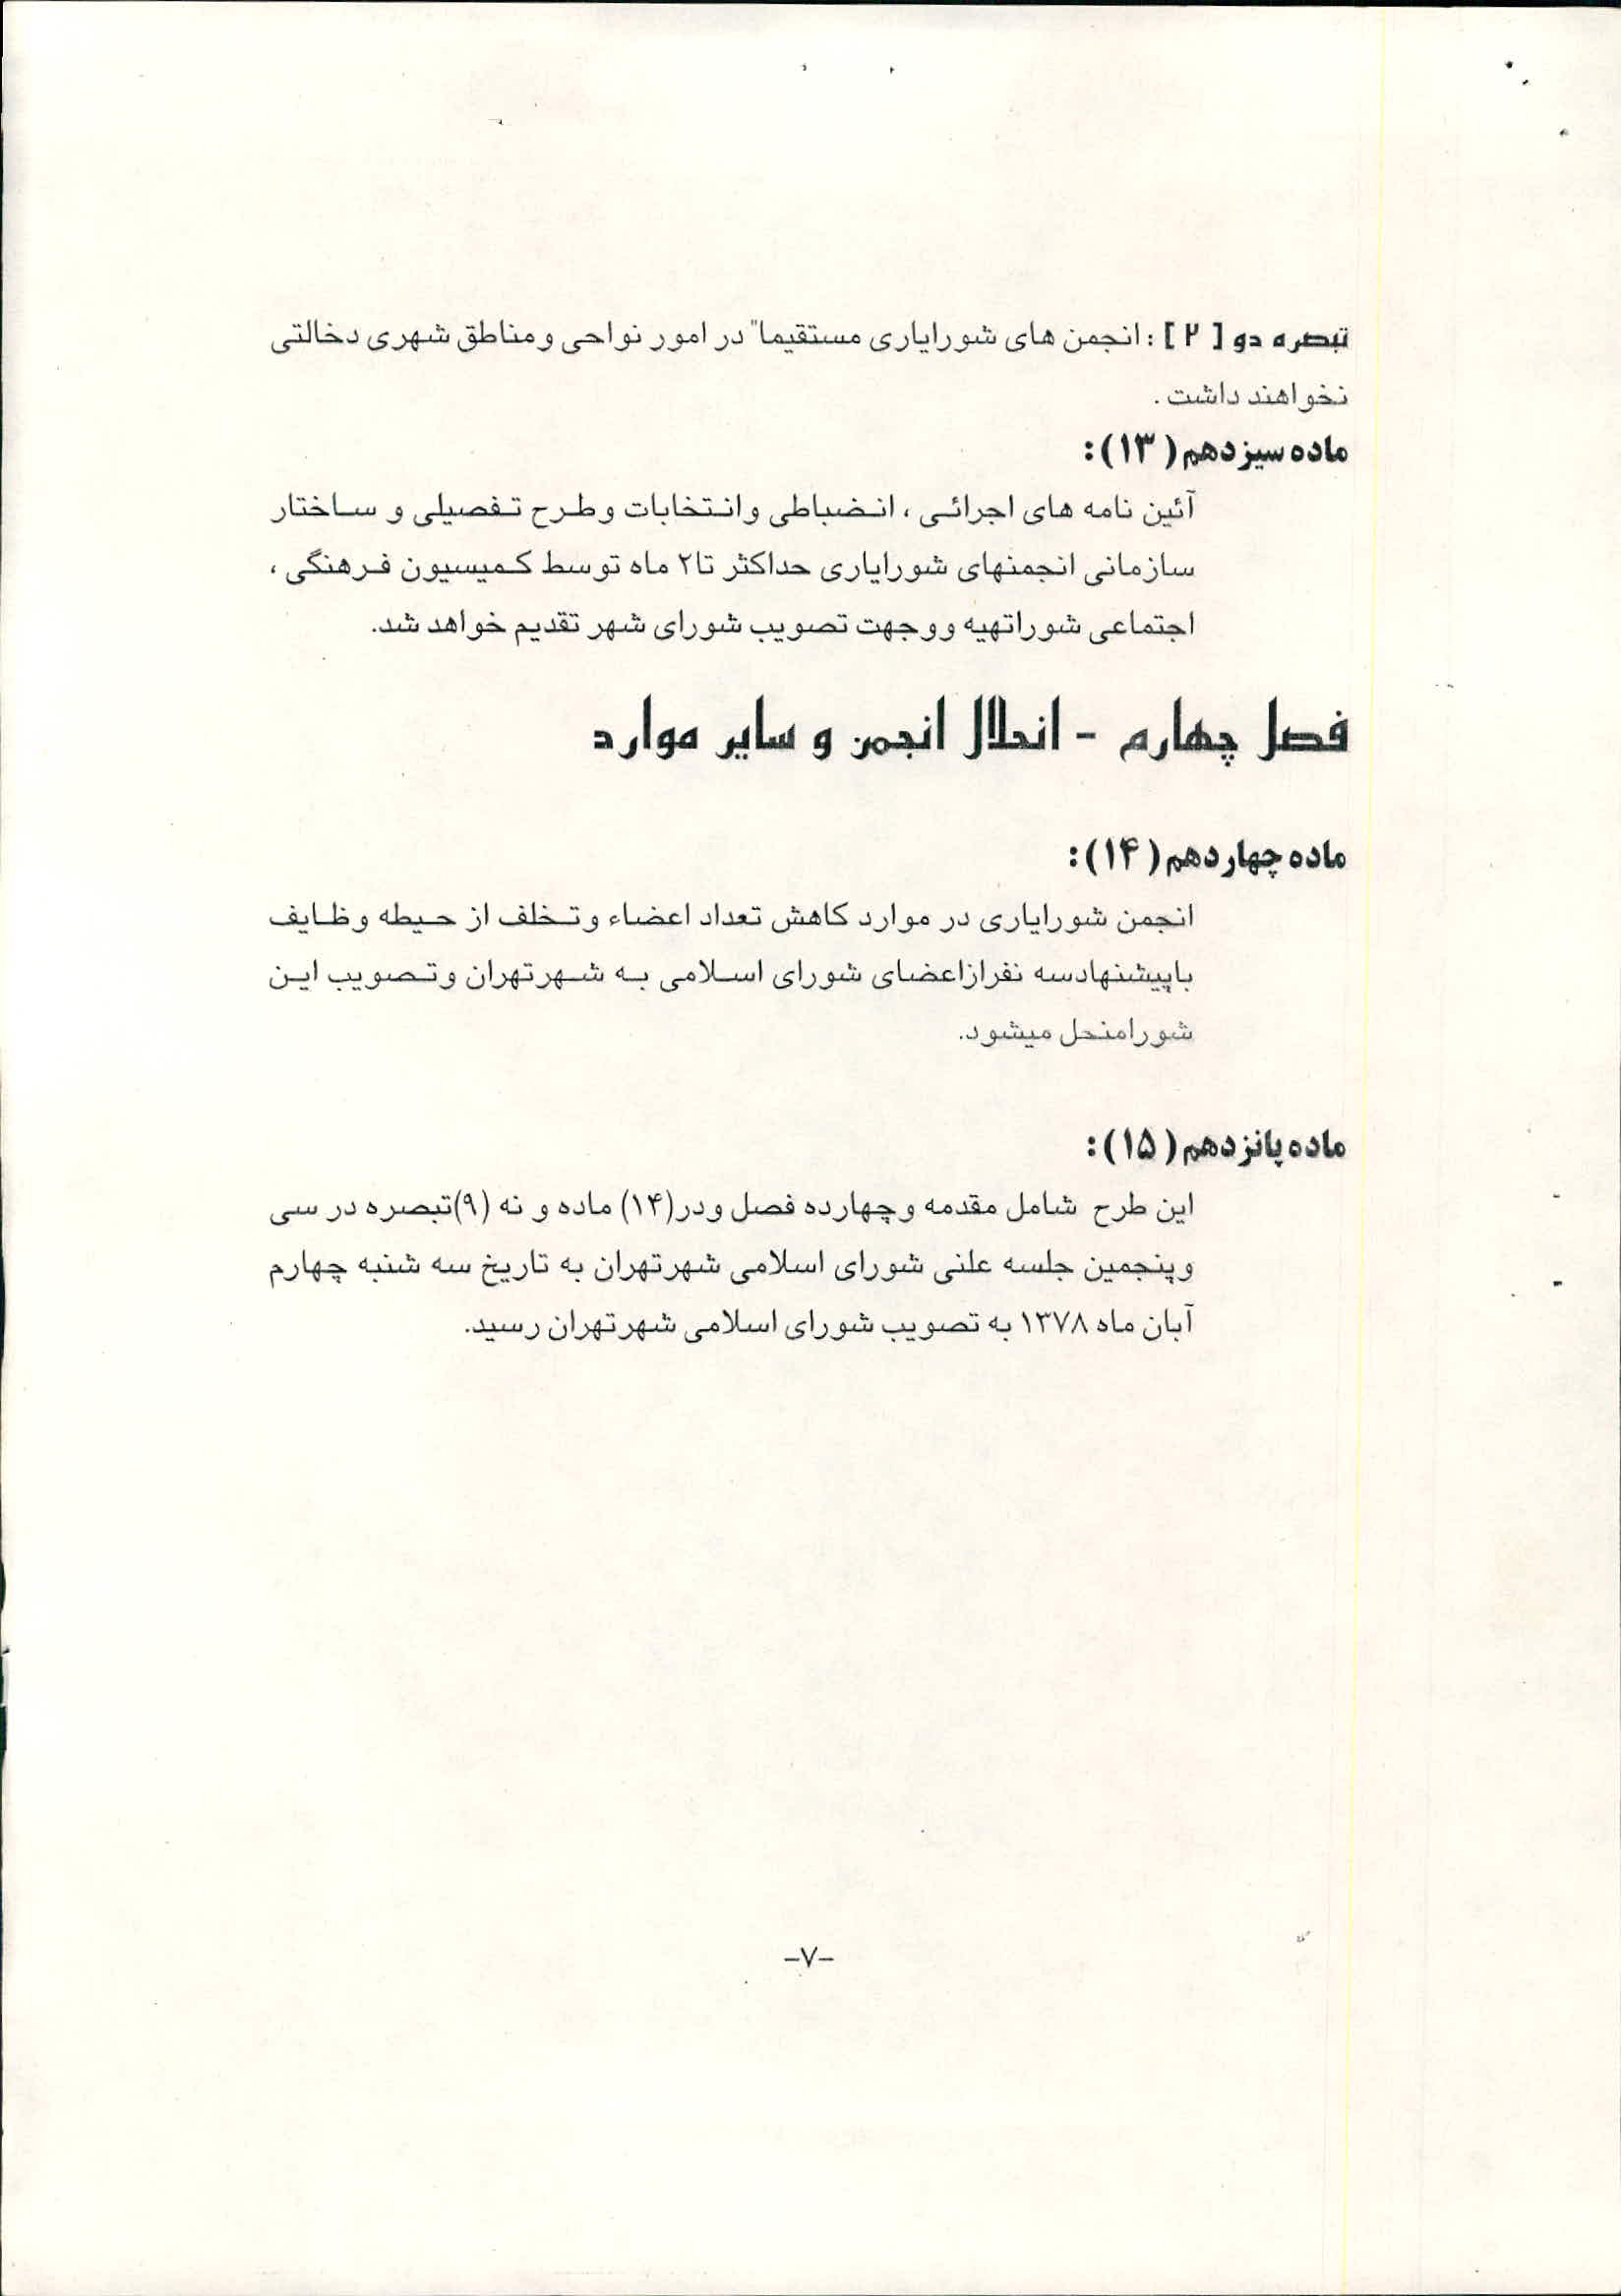 تبصره دو [ ۲ ] : انجمن های شورایاری مستقیما" در امور نواحی ومناطق شهری دخالتی
نخواهند داشت .
ماده سیزدهم ( ۱۳) :
آئین نامه های اجرائی ، انضباطی وانتخابات وطرح تفصیلی و ساختار
سازمانی انجمنهای شورایاری حداکثر تا۲ ماه توسط کمیسیون فرهنگی ،
اجتماعی شوراتهیه ووجهت تصویب شورای شهر تقدیم خواهد شد.
فصل چهارم - انحلال انجمن و سایر موارد
ماده چهاردهم ( ۱۴) :
انجمن شورایاری در موارد کاهش تعداد اعضاء وتخلف از حیطه وظایف
باپیشنهادسه نفرازاعضای شورای اسلامی به شهرتهران وتصویب این
شورامنحل میشود.
ماده پانزدهم ( ۱۵) :
این طرح شامل مقدمه وچهارده فصل ودر(۱۴) ماده و نه (۹)تبصره در سی
وپنجمین جلسه علنی شورای اسلامی شهرتهران به تاریخ سه شنبه چهارم
آبان ماه ۱۳۷۸ به تصویب شورای اسلامی شهرتهران رسید.
-۷-